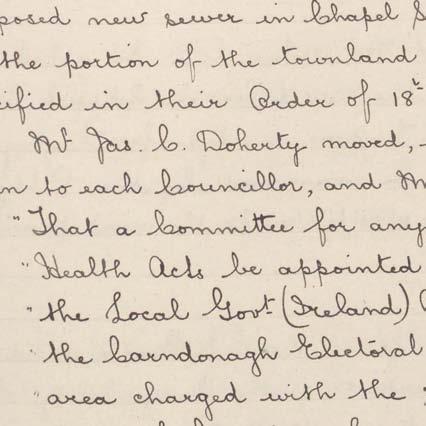 posed new sewer in Chapel S
the portion of the townland
cified in their Order of 18th
Mr Jas. C. Doherty moved, -
n to each Councillor, and M
"That a Committee for any
"Health Acts be appointed
"the Local Govt (Ireland)
"the Carndonagh Electoral
"area charged with the